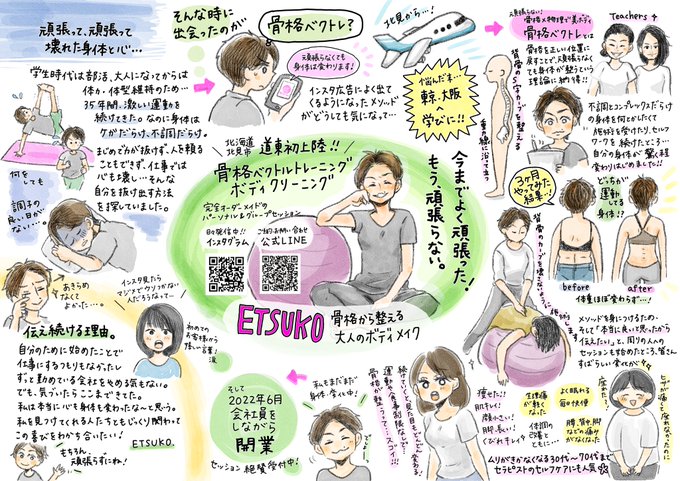 頑張って、頑張って
壊れた身体と心…
学生時代は部活、大人になってからは
体力・体型維持のため…
35年間、激しい運動を
続けてきた。なのに身体は
ケガだらけ、不調だらけ。
まじめで力が抜けず、人を頼る
こともできず。仕事では
心も壊し…そんな
自分を抜け出す方法
を探していました。
何を
しても
調子の
良い日が
ない…。
そんな時に
出会ったのが
骨格ベクトレ?
頑張らなくても
身体は変わります!
インスタ広告によく出て
くるようになったメソッド
がどうしても気になって…
北見から…!
悩んだ末…
東京、大阪
へ
学びに!!
頑張らない!
骨格×物理で美ボディ
骨格ベクトレとは
骨格を正しい位置に
戻すことで、頑張らなく
ても身体が整うという
理論に納得!!
背骨のS字カーブを整える
重力の線に沿って立つ
Teachers
不調とコンプレックスだらけ
の身体を何とかしたくて
施術を受けたり、セルフ
ワークを続けたところ…
自分の身体が驚く程
変わりはじめました!!
3ヶ月
やってみた
結果…!
どっちが
運動し
てる
身体!?
before
after
体重ほぼ変わらず…!
北海道
北見市
道東初上陸!!
骨格ベクトルトレーニング
ボディクリーニング
完全オーダーメイドの
パーソナル&グループセッション
日々発信中!!
インスタグラム
ご予約・お問い合わせ
公式LINE
今までよく頑張った!
もう、頑張らない。
ETSUKO
骨格から整える
大人のボディメイク
背骨のカーブを壊さないように
メソッドを身につけるため、
そして「本当に良いと思ったから
伝えたい」と、周りの人への
セッションも始めたところ、皆さん
すばらしい変化が
あきらめ
なくて
よかった…。
インスタ見たら
マジメでウソがない
人だろうなって…
初めての
お客様から
嬉しい一言!
涙
伝え続ける理由。
自分のために始めたことで
仕事にするつもりもなかったし
ずっと勤めている会社をやめる気もない。
でも、気づいたらここまできてた。
私は本当に心も身体も変わったな〜と思う。
私を見つけてくれる人たちともじっくり関わって
この喜びをわかち合いたい!
ETSUKO.
もちろん、
頑張らずにね!
そして
2022年6月
会社員を
しながら
開業
セッション絶賛受付中!
私もまだまだ
身体、変化中!
続けていくと、見た目もどんどん変わる。
運動や食事制限なしで
骨格が整うって…スゴイ!!
痩せた!!
肌キレイ!
顔小さい!
脚長い!
くびれキレイ
生理痛
が軽く
なった
よく眠れる
毎日快便
体調の
改善と
ともに…
腰、背中、脚
などの痛み
がなくなった
ヒザが痛くて座れなかったのに…
ムリがきかなくなる30代〜70代まで
セラピストのセルフケアにも人気